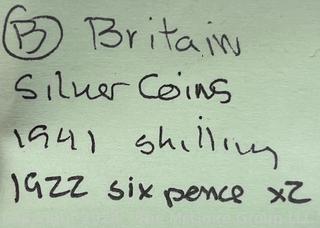 B Britain
Silver Coins
1941 shilling
1922 six pence x2